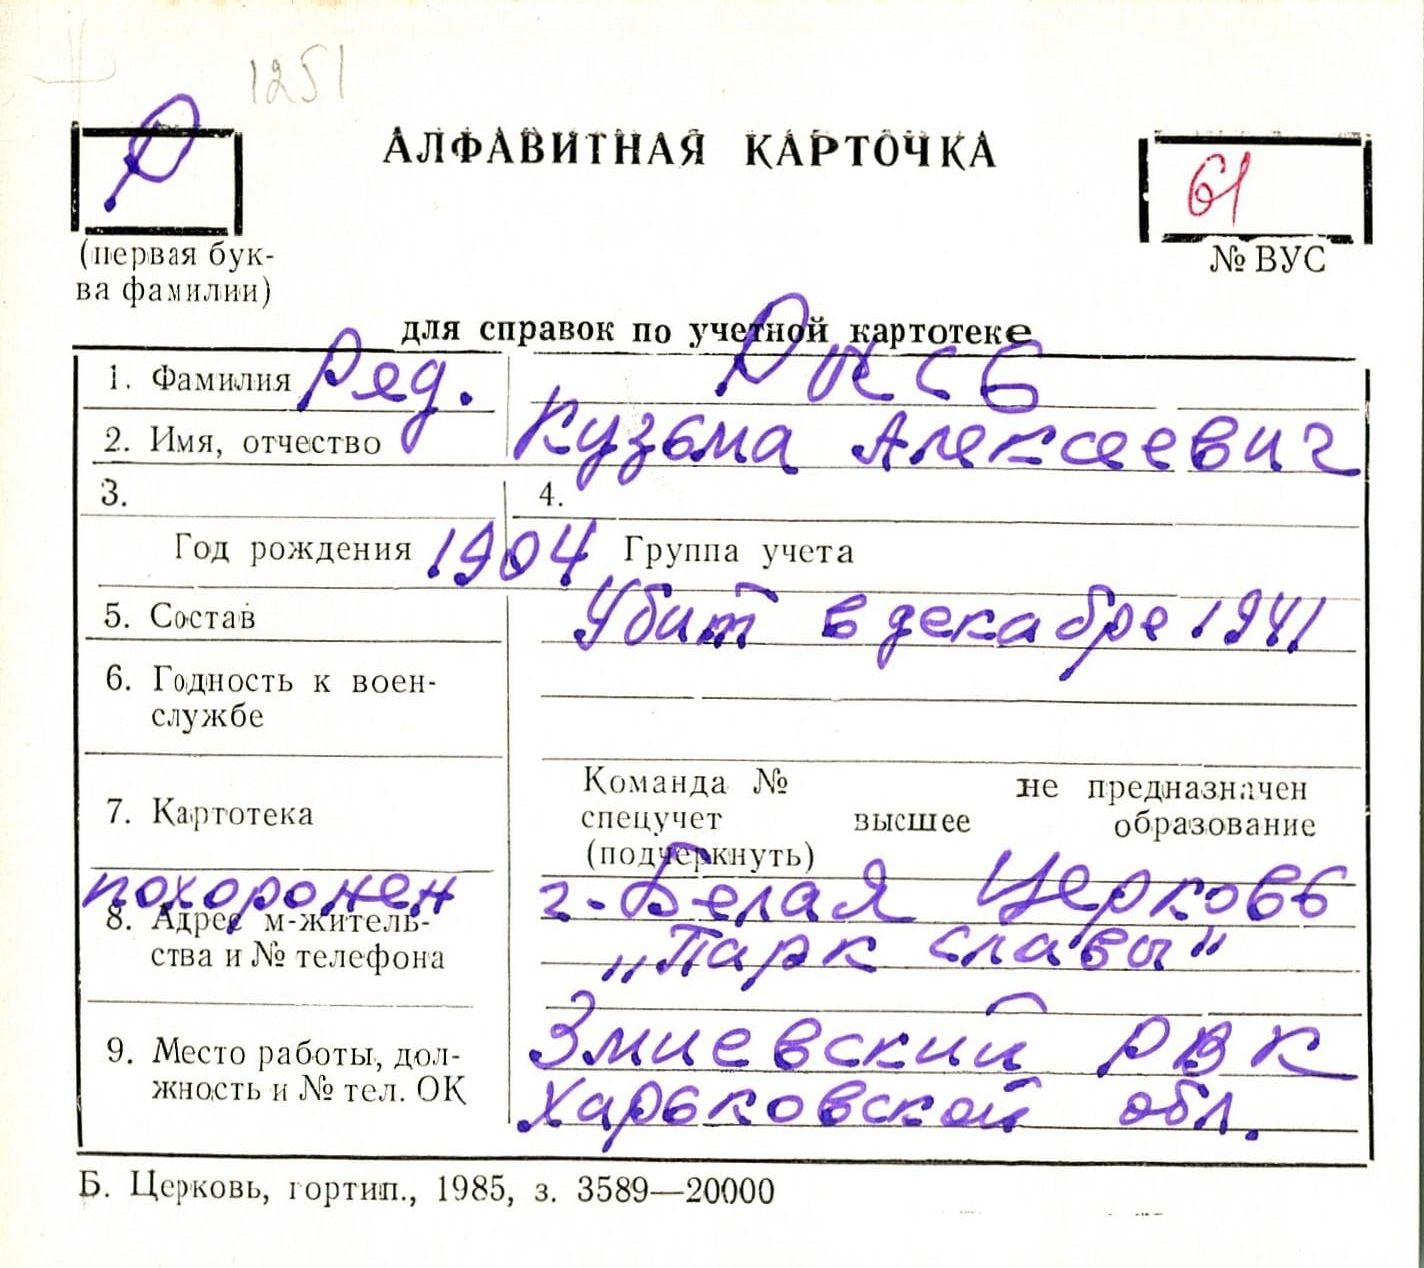 1251
Р
АЛФАВИТНАЯ КАРТОЧКА
61
(первая бук-
ва фамилии)
№ ВУС
для справок по учетной картотеке
1. Фамилия Ряд. Рись
2. Имя, отчество Кузьма Алексеевич
3. 4.
Год рождения 1904 Группа учета
5. Состав Убит в декабре 1941
6. Годность к воен-
службе
Команда № не предназначен
7. Картотека спецучет высшее образование
(подчеркнуть)
похоронен г. Белая Церковь
8. Адрес м-житель-
ства и № телефона „Парк славы"
9. Место работы, дол- Змиевский РВК
жность и № тел. ОК Харьковской обл.
Б. Церковь, гортип., 1985, з. 3589—20000